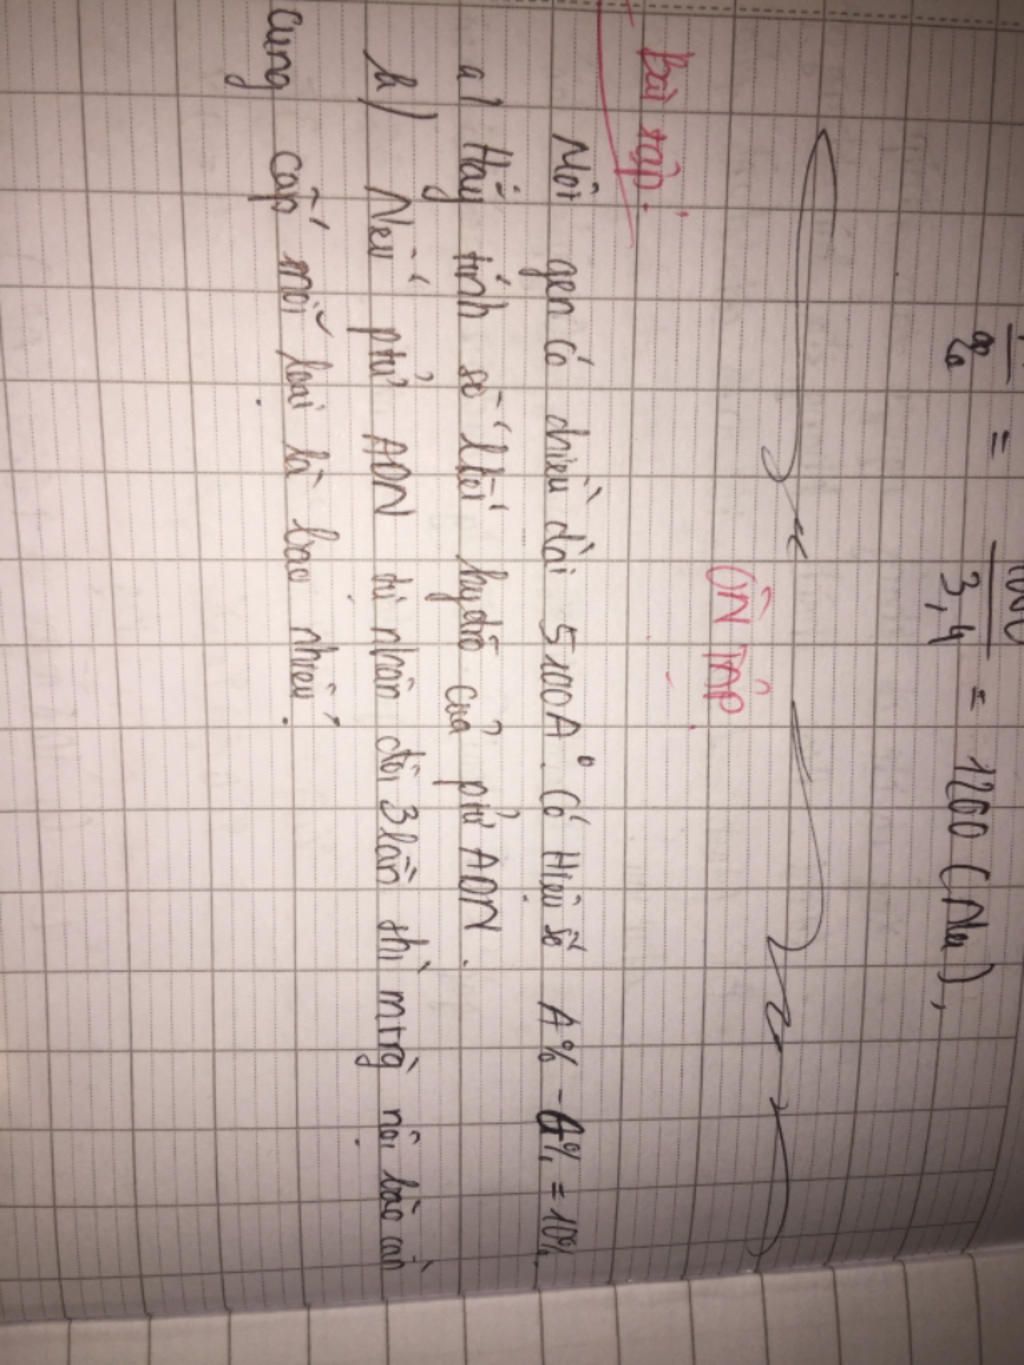 = 100 / 3,4 = 1200 (Nu),
ÔN TẬP
bài tập:
Một gen có chiều dài 5100A°. Có Hiệu số A% - G% = 10%.
a) Hãy tính số lkết hyđrô của ptử ADN.
b) Nếu ptử ADN tự nhân đôi 3 lần thì mtrg nội bào cần
cung cấp mỗi loại là bao nhiêu.